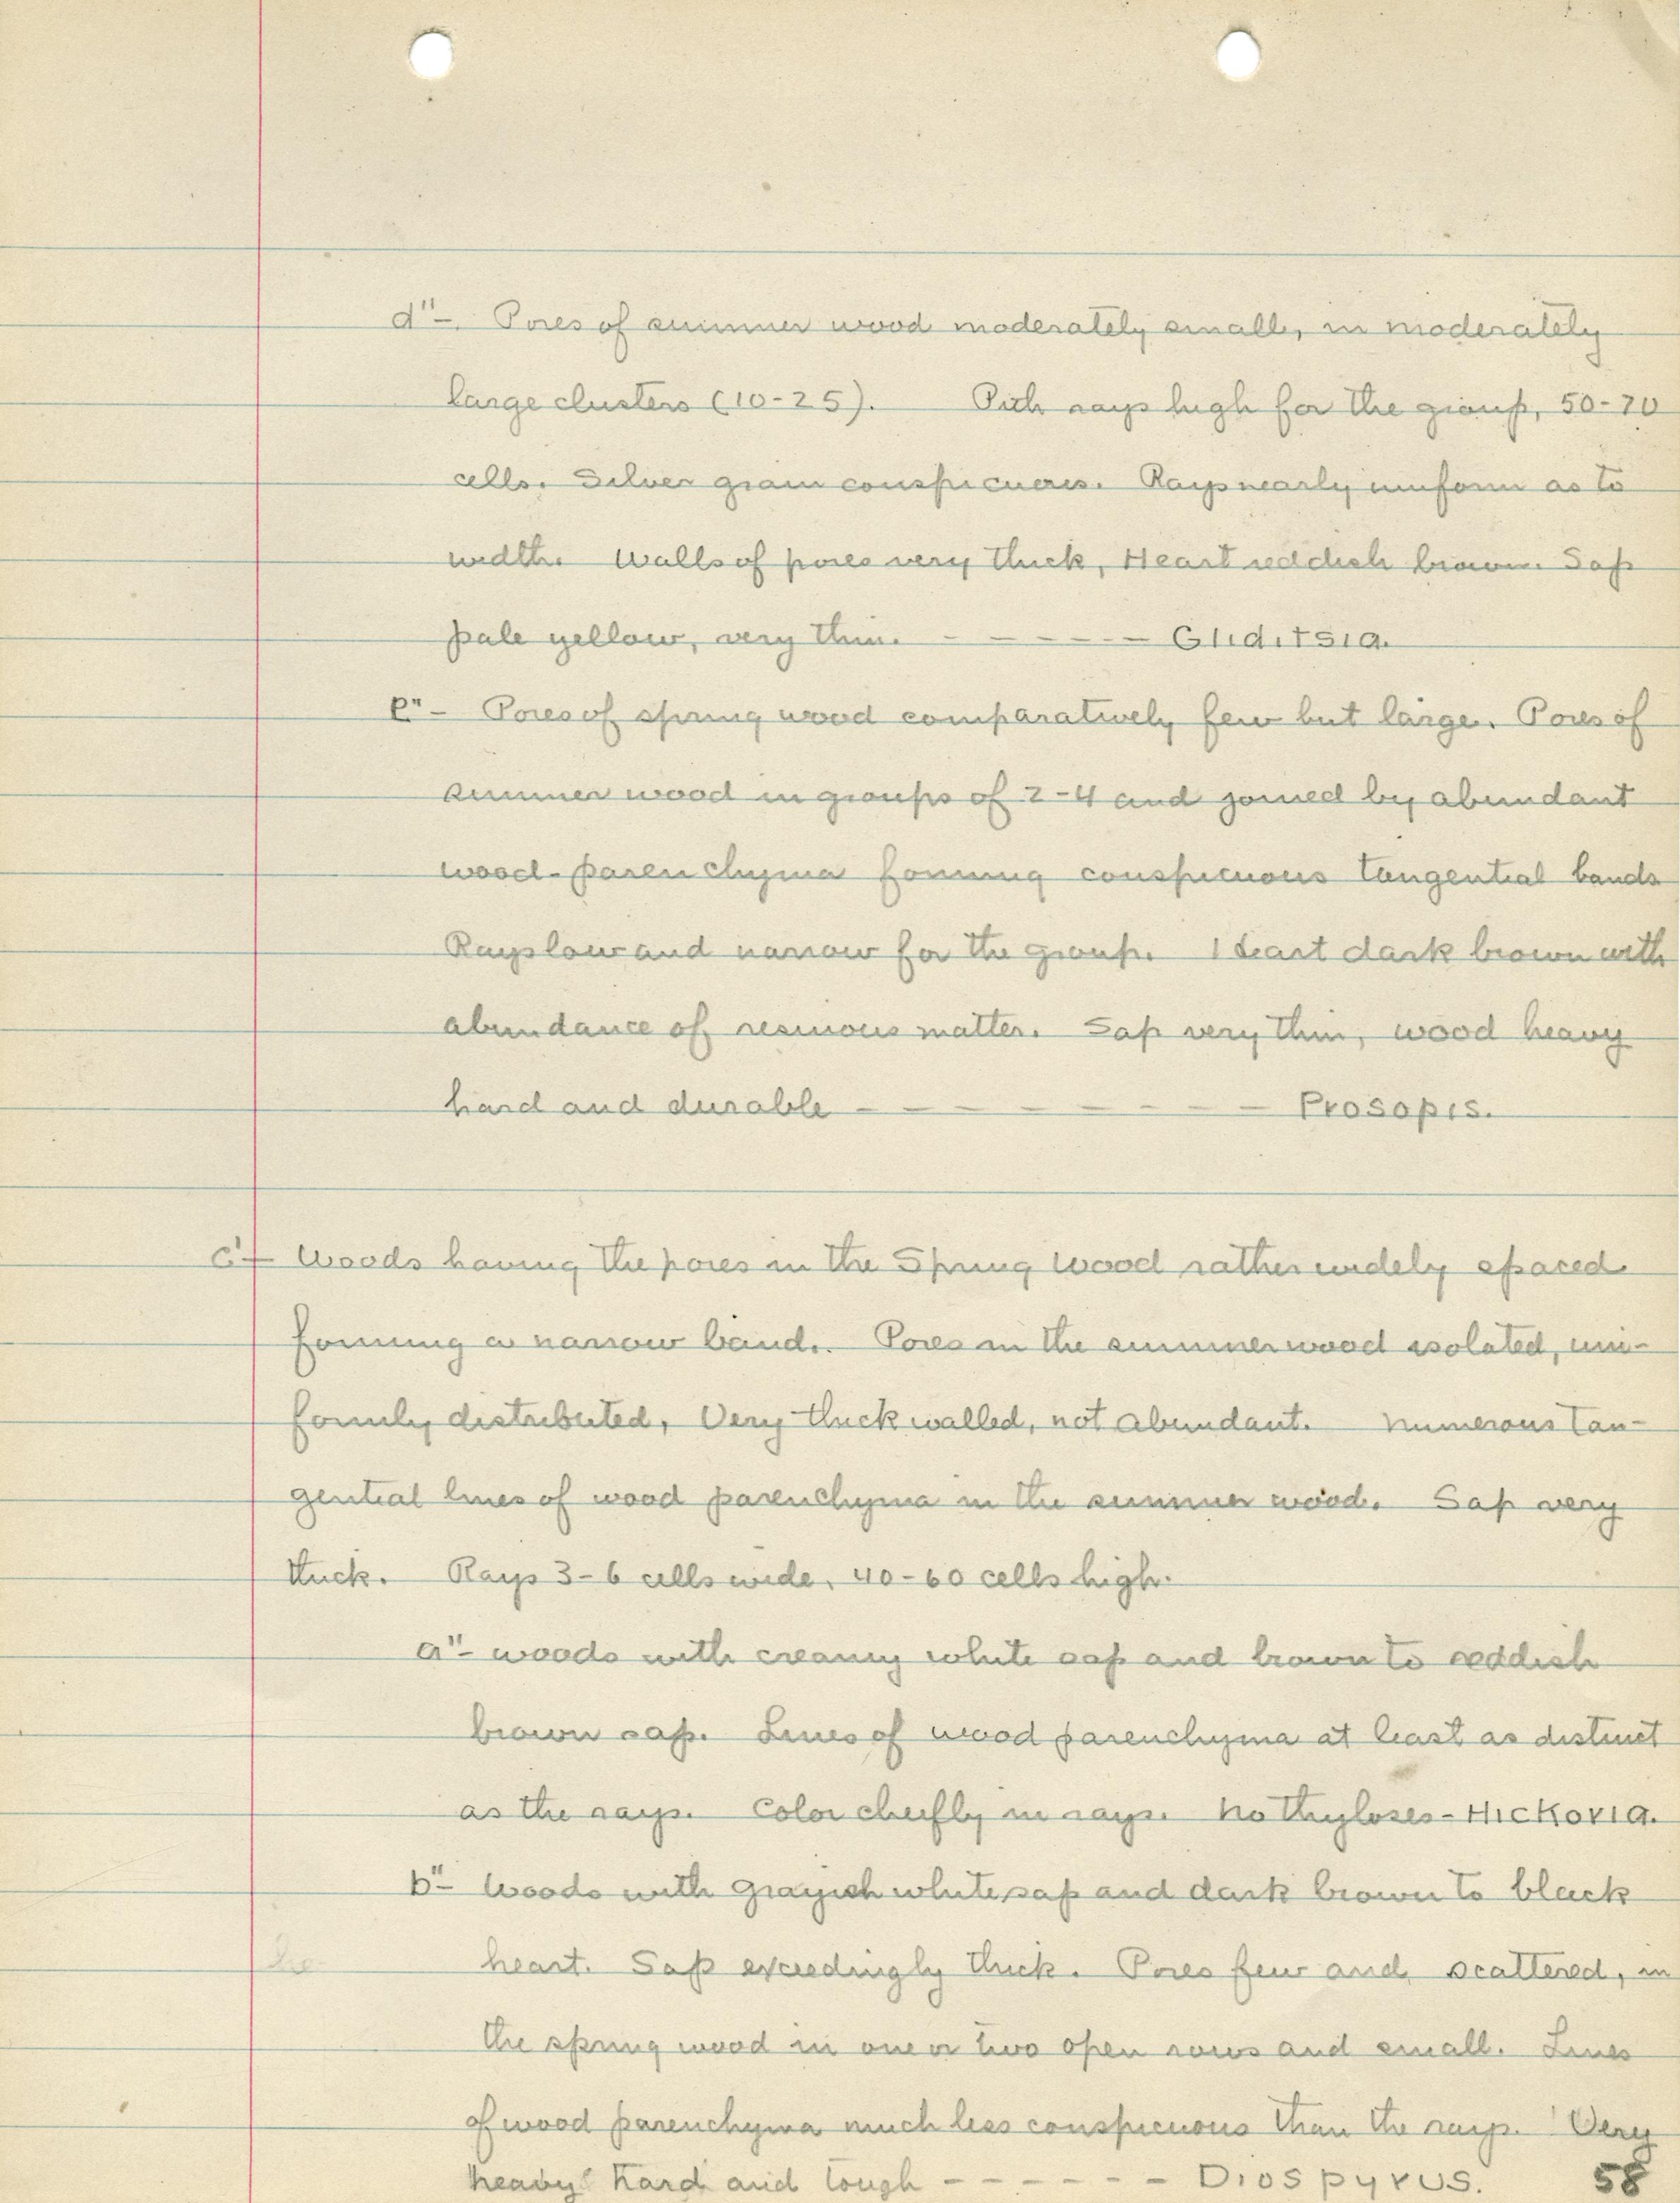 d"- Pores of summer wood moderately small, in moderately
large clusters (10-25). Pith rays high for the group, 50-70
cells. Silver grain conspicuous. Rays nearly uniform as to
width. Walls of pores very thick, Heart reddish brown. Sap
pale yellow, very thin. - - - - - - Gliditsia.
e"- Pores of spring wood comparatively few but large. Pores of
summer wood in groups of 2-4 and joined by abundant
wood-parenchyma forming conspicuous tangential bands
Rays low and narrow for the group. Heart dark brown with
abundance of resinous matter. Sap very thin, wood heavy
hard and durable - - - - - - Prosopis.
c'- Woods having the pores in the Spring wood rather widely spaced
forming a narrow band. Pores in the summer wood isolated, uni-
formly distributed, Very thick walled, not abundant. Numerous tan-
gential lines of wood parenchyma in the summer wood. Sap very
thick. Rays 3-6 cells wide, 40-60 cells high.
a"- woods with creamy white sap and brown to reddish
brown sap. Lines of wood parenchyma at least as distinct
as the rays. Color cheifly in rays. No thyloses - Hickoria.
b"- Woods with grayish white sap and dark brown to black
heart. Sap exceedingly thick. Pores few and scattered, in
the spring wood in one or two open rows and small. Lines
of wood parenchyma much less conspicuous than the rays. Very
heavy hard and tough - - - - - - Diospyrus. 58